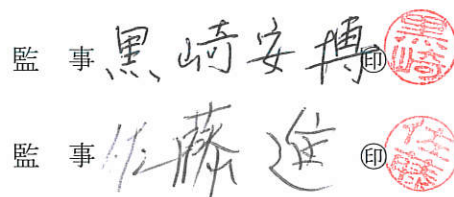 監 事 黒崎安博 ㊞ 黒崎
監 事 佐藤進 ㊞ 佐藤